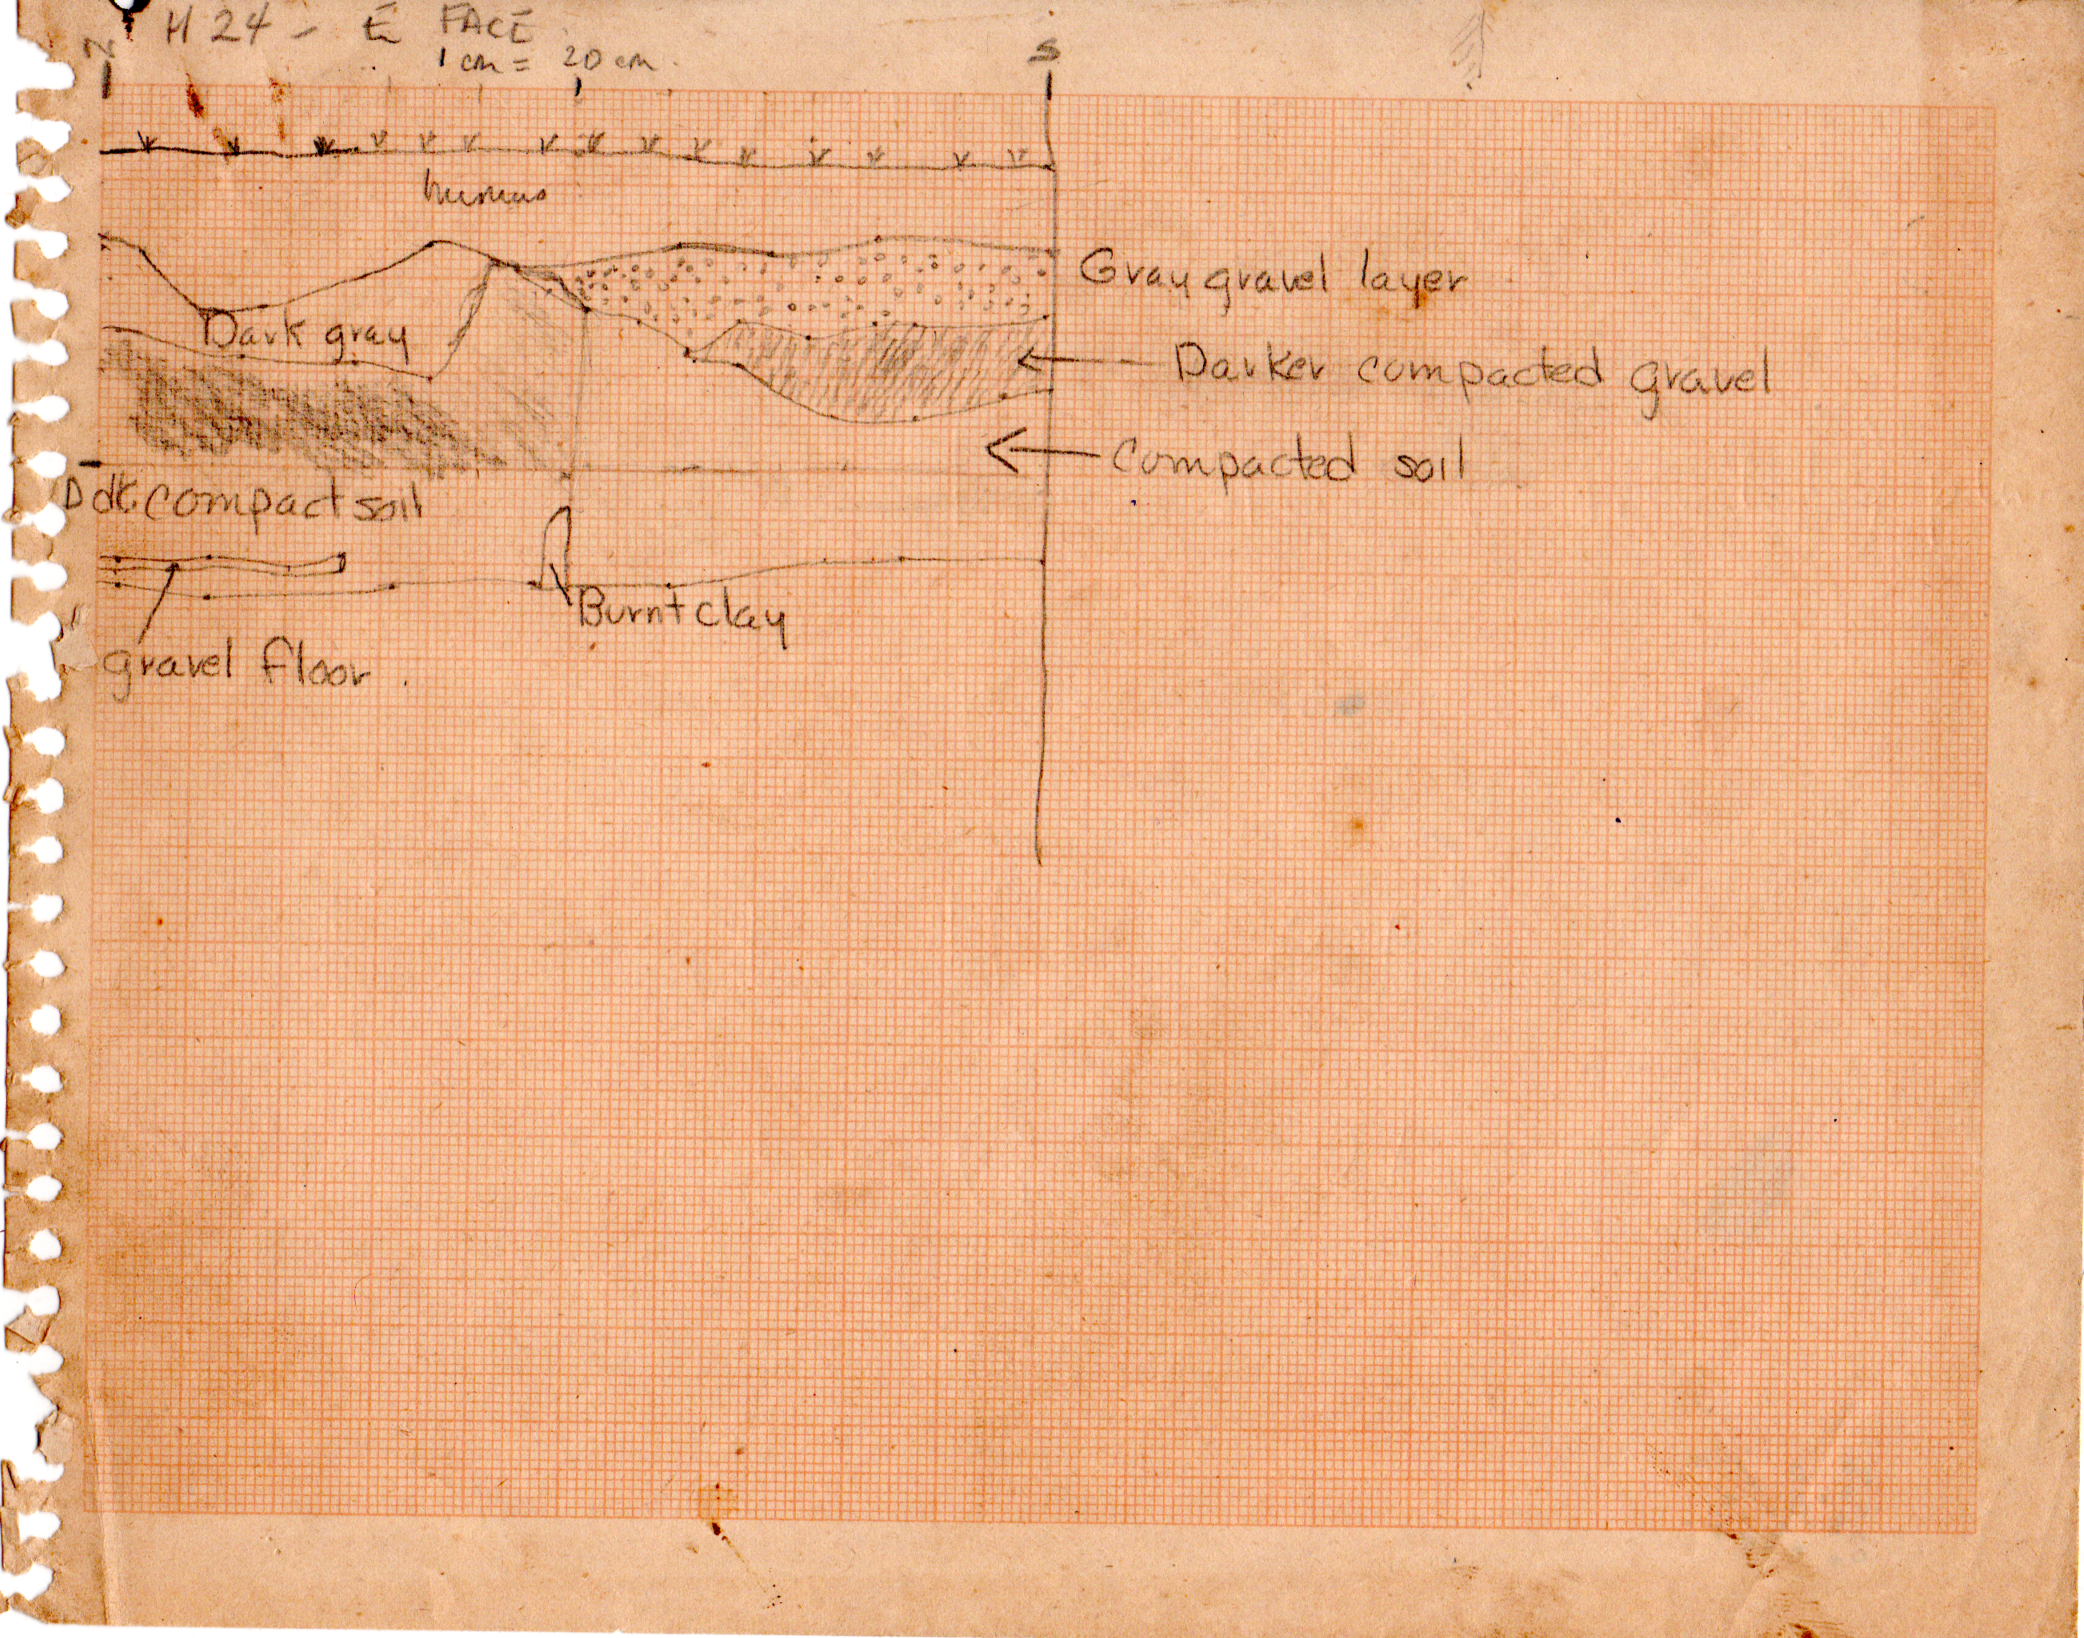 H 24 - E FACE
1 cm = 20 cm.
N
S
humus
Gray gravel layer
Dark gray
Darker compacted gravel
Compacted soil
compact soil
Burnt clay
gravel floor.